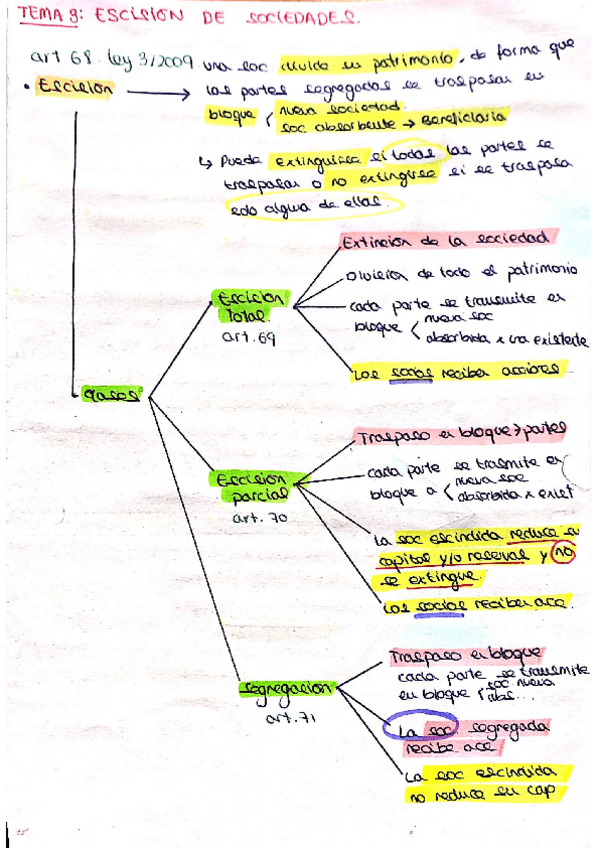 TEMA 8: ESCISIÓN DE SOCIEDADES.
art 68. ley 3/2009 una soc divide su patrimonio, de forma que
• Escisión → las partes segregadas se traspasan en
bloque < nueva sociedad.
soc absorbente → Beneficiaria
↳ Puede extinguirse si todas las partes se
traspasan o no extingue si se traspasa
solo alguna de ellas.
Extinción de la sociedad
División de todo el patrimonio
Escisión
Total.
art. 69
cada parte se transmite en
bloque < nueva soc
absorbida x una existente
Los socios reciben acciones
clases
Traspaso en bloque > partes
Escisión
parcial
art. 70
cada parte se trasmite en
bloque a < nueva soc
absorbida x exist
La soc escindida reduce su
capital y/o reservas y no
se extingue.
Los socios reciben acc.
Segregación
art. 71
Traspaso en bloque
cada parte se transmite
en bloque < soc nueva
abs...
La soc segregada
recibe acc
La soc escindida
no reduce su cap